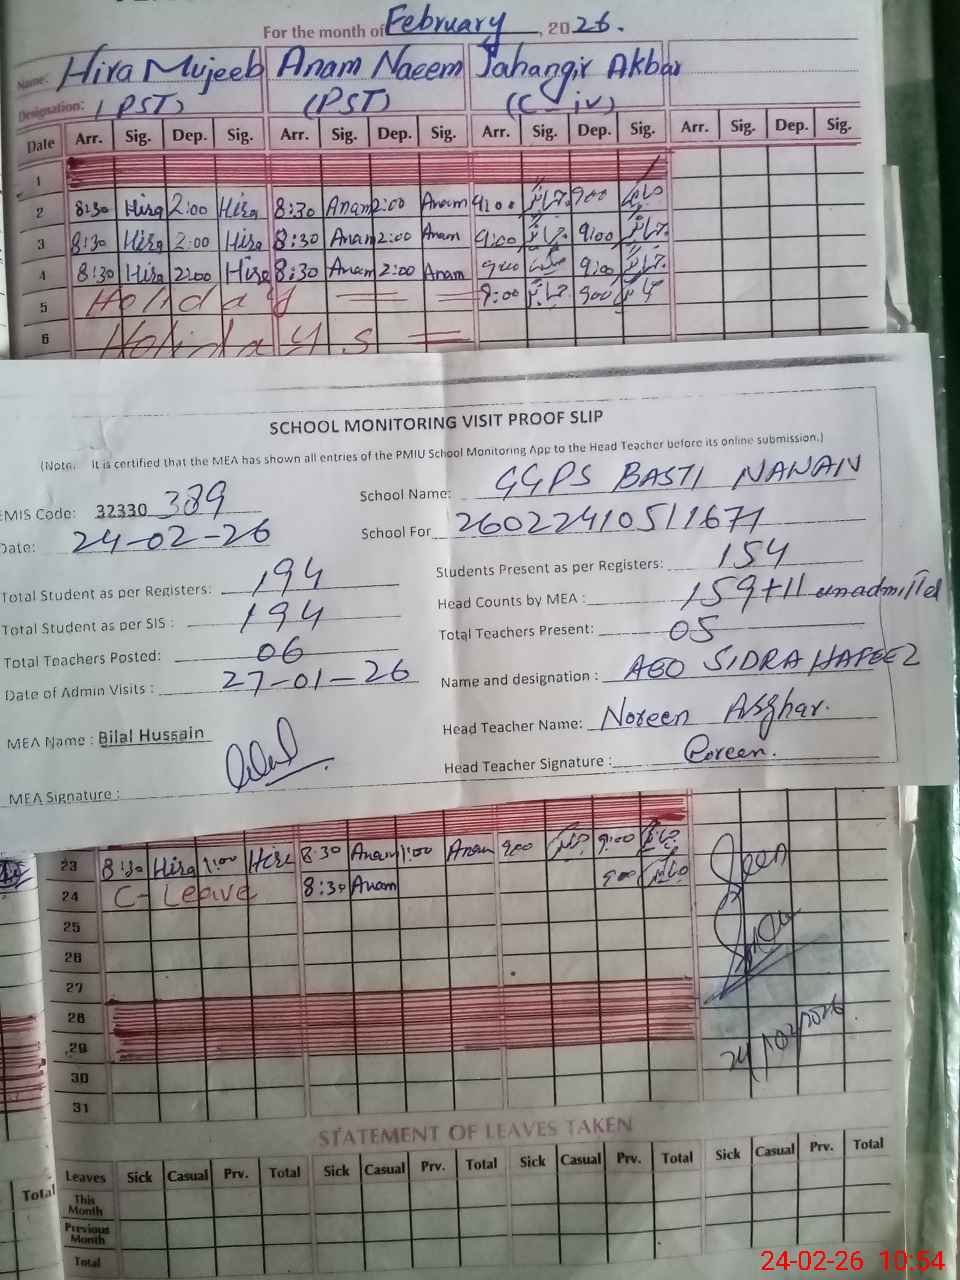 For the month of February, 2026.
Name: Hira Mujeeb Anam Naeem Jahangir Akbar
Designation: (PST) (PST) (C iv)
Date Arr. Sig. Dep. Sig. Arr. Sig. Dep. Sig. Arr. Sig. Dep. Sig. Arr. Sig. Dep. Sig.
1
2 8:30 Hira 2:00 Hira 8:30 Anam 2:00 Anam 9:00 900
3 8:30 Hira 2:00 Hira 8:30 Anam 2:00 Anam 9:00 9:00
4 8:30 Hira 2:00 Hira 8:30 Anam 2:00 Anam 900 9:00
5 Holiday 9:00 900
6 Holidays
SCHOOL MONITORING VISIT PROOF SLIP
(Note. It is certified that the MEA has shown all entries of the PMIU School Monitoring App to the Head Teacher before its online submission.)
EMIS Code: 32330 389 School Name: GGPS BASTI NANAN
Date: 24-02-26 School For 26022410511671
Total Student as per Registers: 194 Students Present as per Registers: 154
Total Student as per SIS : 194 Head Counts by MEA : 159+11 unadmitted
Total Teachers Posted: 06 Total Teachers Present: 05
Date of Admin Visits : 27-01-26 Name and designation : AEO SIDRA HAFEEZ
MEA Name : Bilal Hussain Head Teacher Name: Noreen Asghar.
MEA Signature : Head Teacher Signature : Noreen.
23 8:30 Hira 1:00 Hira 8:30 Anam 1:00 Anam 900 9:00
24 C- Leave 8:30 Anam 900
25
26
27
28
29
30
31
24/02/2026.
STATEMENT OF LEAVES TAKEN
Leaves Sick Casual Prv. Total Sick Casual Prv. Total Sick Casual Prv. Total Sick Casual Prv. Total
Total This Month
Previous Month
Total
24-02-26 10:54